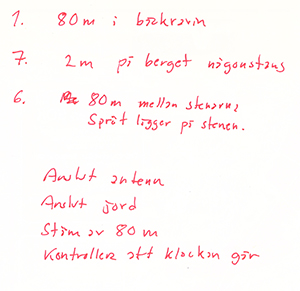 1. 80 m i bäckravin
7. 2 m på berget någonstans
6. 80 m mellan stenarna
Spröt ligger på stenen.
Anslut antenn
Anslut jord
Stäm av 80 m
Kontrollera att klockan går